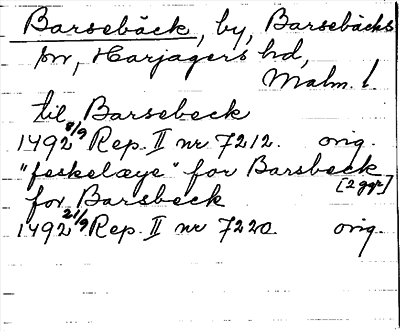 Barsebäck, by, Barsebäcks
sn, Harjagers hd,
Malm. l.
til Barsebeck
1492 8/9 Rep. II nr 7212. orig.
"feskelæye" for Barsbeck
[2 ggr]
for Barsbeck
1492 21/9 Rep. II nr 7220. orig.